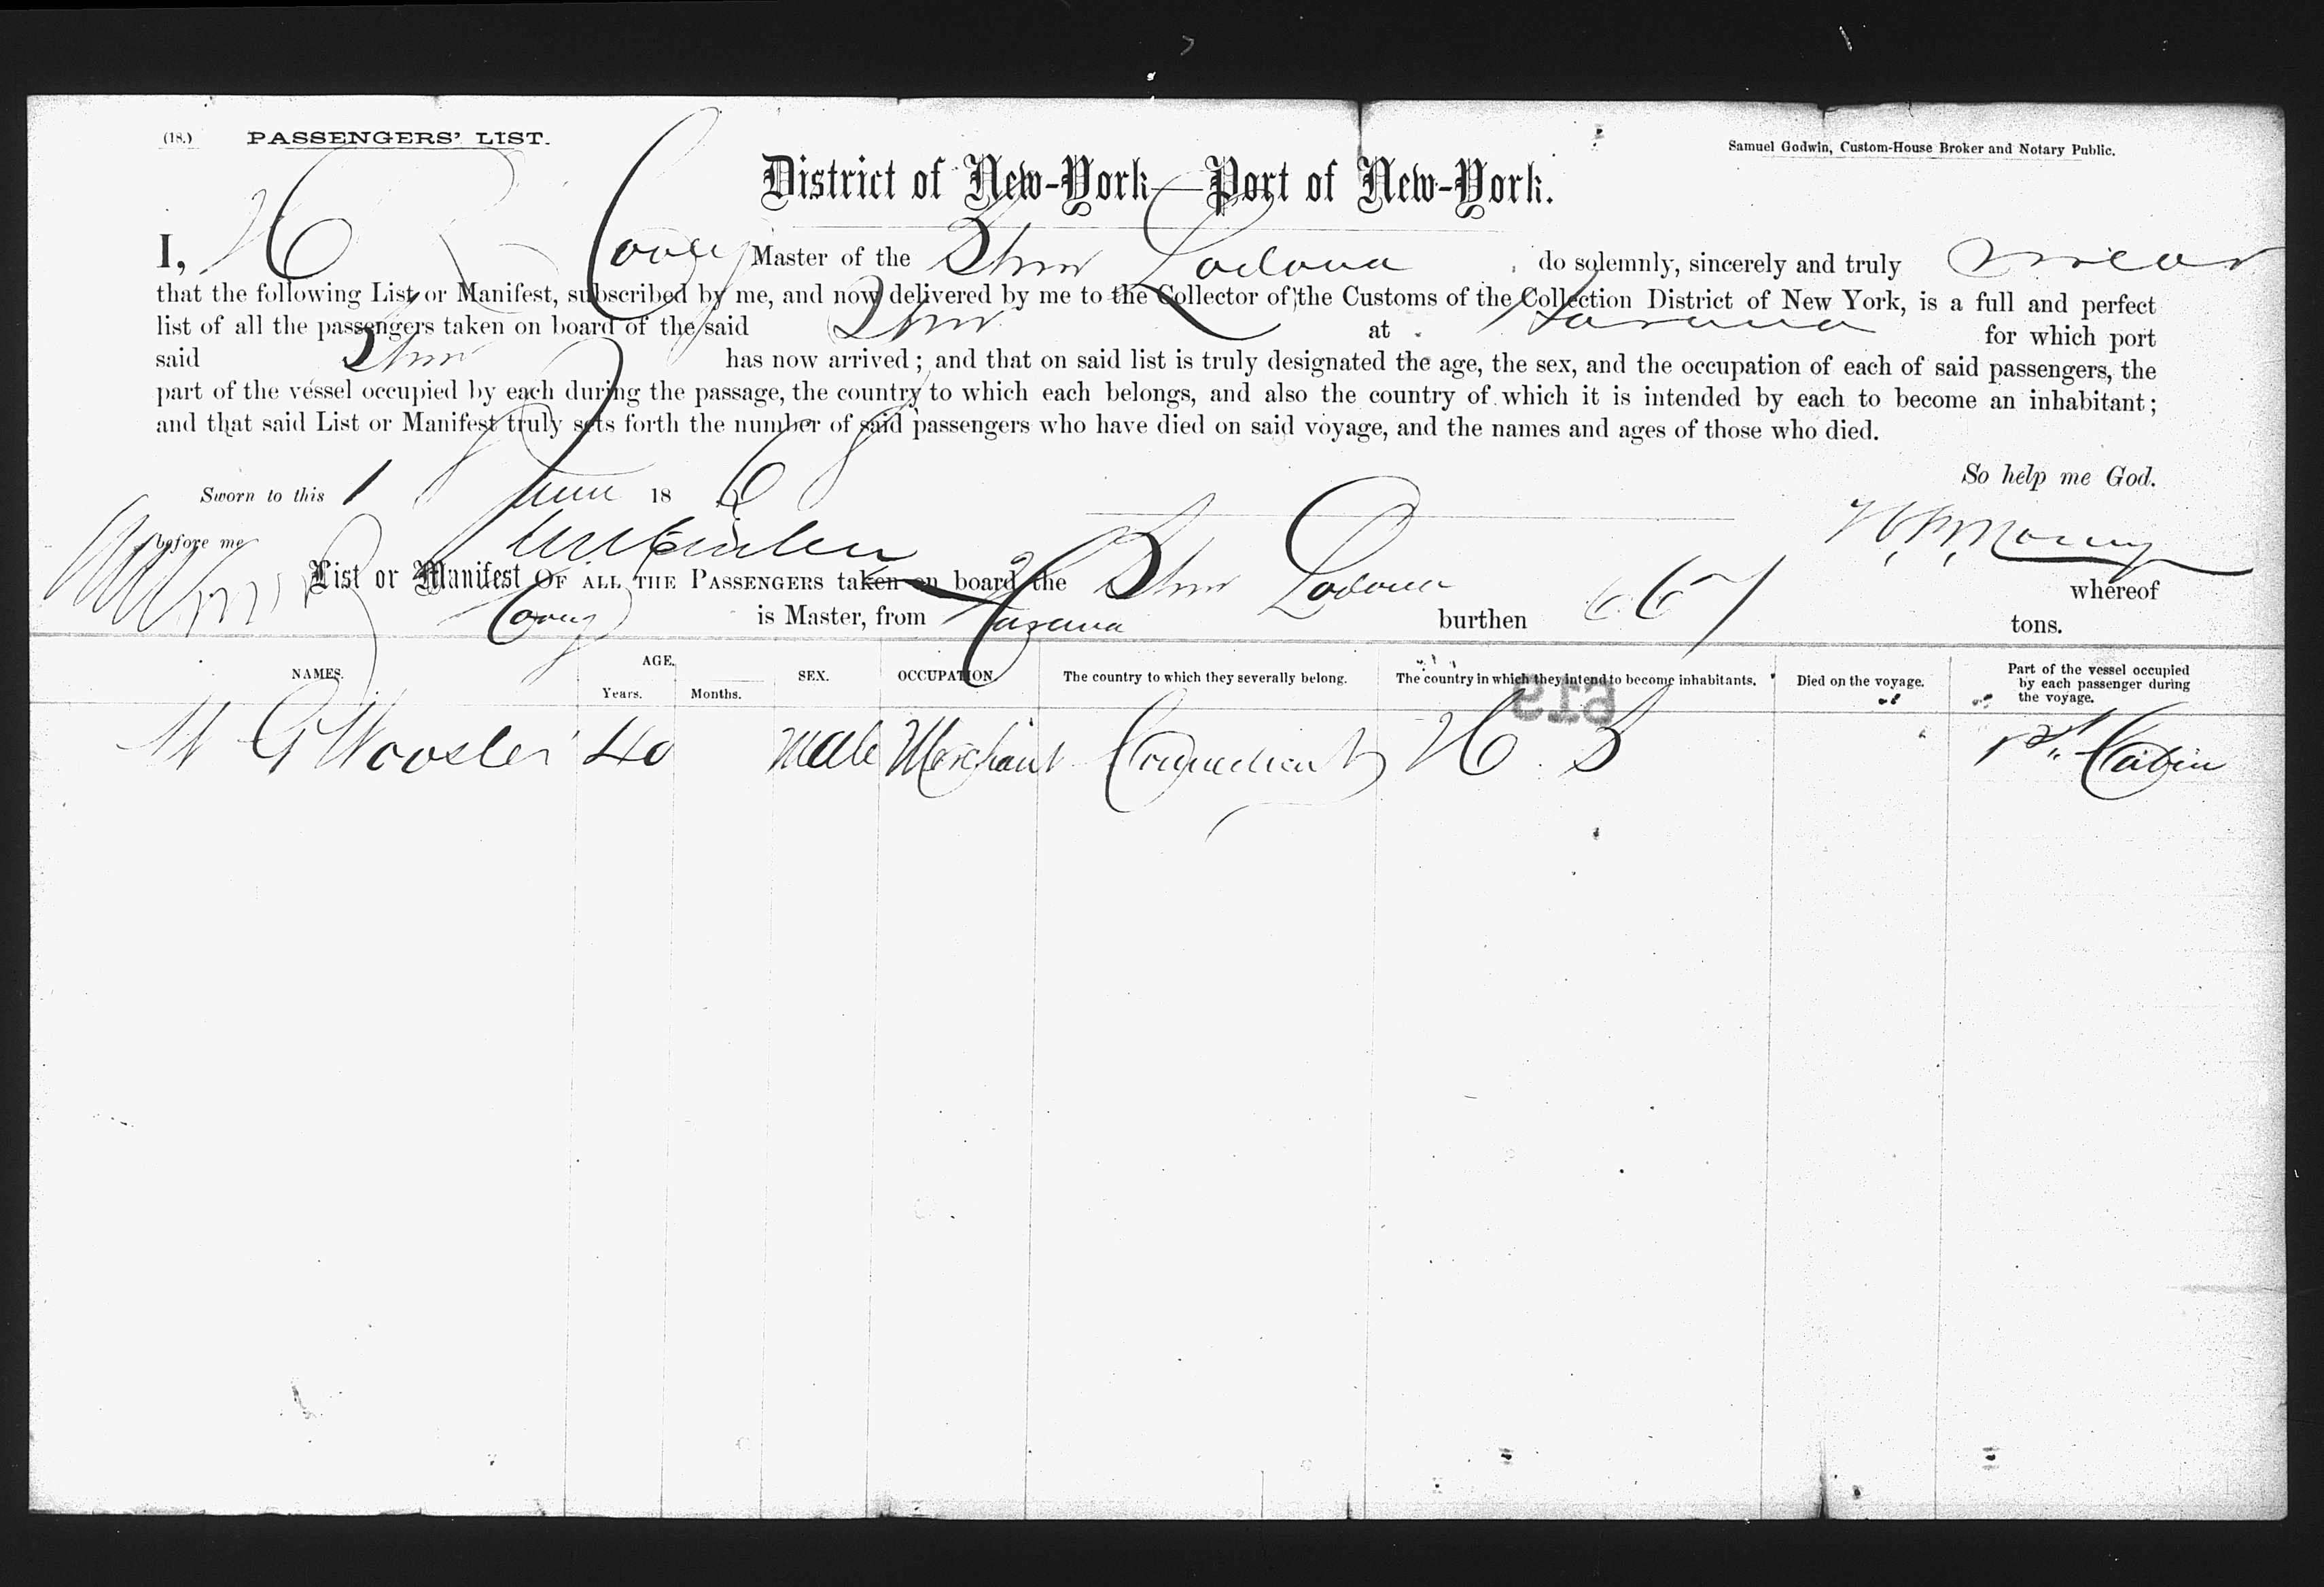 (18.) PASSENGERS' LIST.
Samuel Godwin, Custom-House Broker and Notary Public.
District of New-York—Port of New-York.
I, Master of the Stmr Lodona do solemnly, sincerely and truly swear
that the following List or Manifest, subscribed by me, and now delivered by me to the Collector of the Customs of the Collection District of New York, is a full and perfect
list of all the passengers taken on board of the said Stmr at Havana for which port
said Stmr has now arrived; and that on said list is truly designated the age, the sex, and the occupation of each of said passengers, the
part of the vessel occupied by each during the passage, the country to which each belongs, and also the country of which it is intended by each to become an inhabitant;
and that said List or Manifest truly sets forth the number of said passengers who have died on said voyage, and the names and ages of those who died.
So help me God.
Sworn to this 1 June 18 68
before me
List or Manifest OF ALL THE PASSENGERS taken on board the Stmr Lodona whereof
is Master, from Havana burthen tons.
NAMES. AGE. Years. Months. SEX. OCCUPATION. The country to which they severally belong. The country in which they intend to become inhabitants. Died on the voyage. Part of the vessel occupied by each passenger during the voyage.
G Wooster 40 Male Merchant U S 1st Cabin